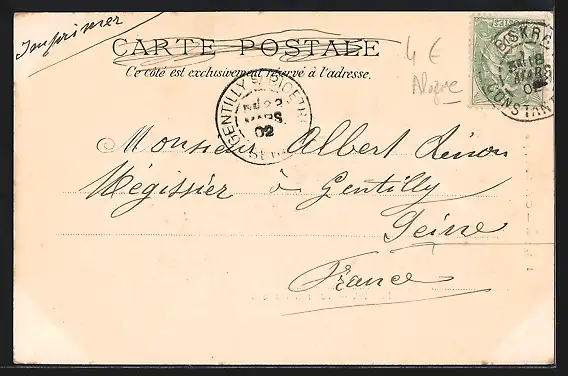 Imprimer
CARTE POSTALE
Ce côté est exclusivement réservé à l'adresse.
4 €
BISKRA
18
MARS
02
CONSTANT
GENTILLY
22
MARS
02
Monsieur Albert
Mégissier à Gentilly
Seine
France